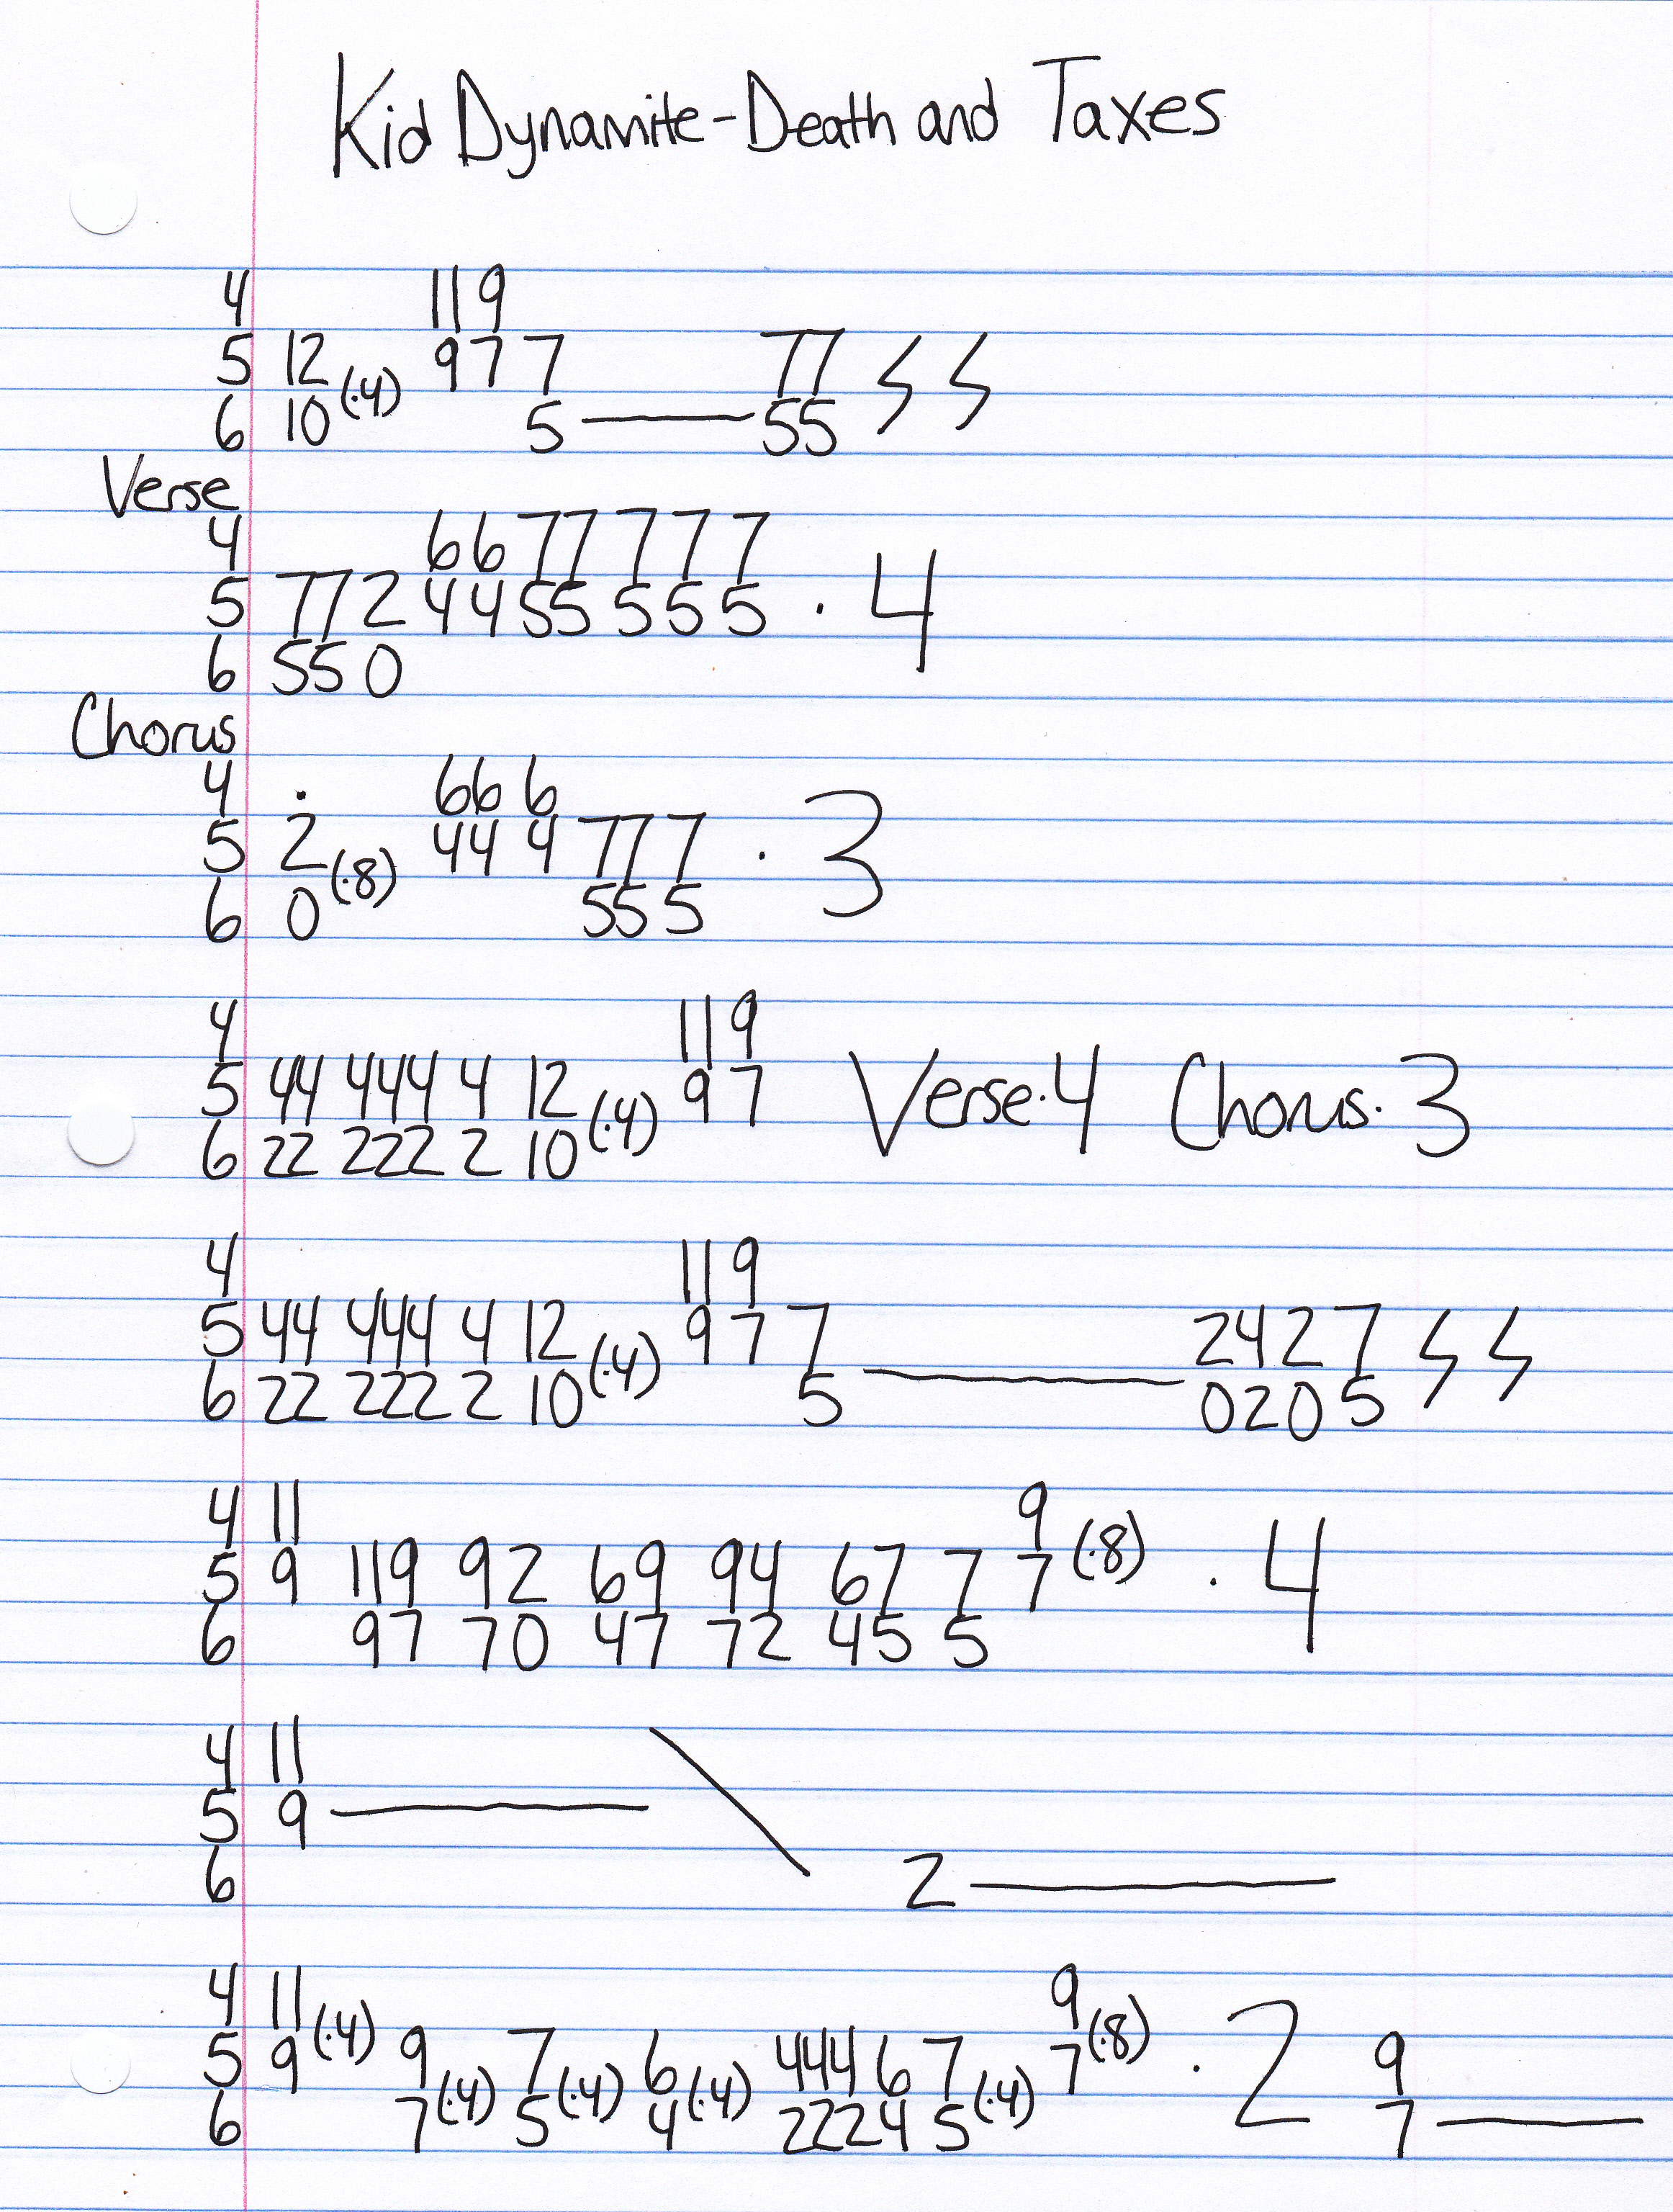 Kid Dynamite - Death and Taxes
4 11 9
5 12 (·4) 9 7 7 77
6 10 5 55
Verse
4 66 77 7 7 7
5 77 2 44 55 5 5 5 · 4
6 55 0
Chorus
4 · 66 6
5 2 (·8) 44 4 77 7 · 3
6 0 55 5
4 11 9
5 44 444 4 12 (·4) 9 7 Verse·4 Chorus·3
6 22 222 2 10
4 11 9
5 44 444 4 12 (·4) 9 7 7 2 4 2 7
6 22 222 2 10 5 0 2 0 5
4 11 9 (·8)
5 9 11 9 9 2 6 9 9 4 6 7 7 7 · 4
6 9 7 7 0 4 7 7 2 4 5 5
4 11
5 9
6 2
4 11 (·4) 9 (·8)
5 9 9 7 6 444 6 7 7 · 2 9
6 7 (·4) 5 (·4) 4 (·4) 222 4 5 (·4) 7